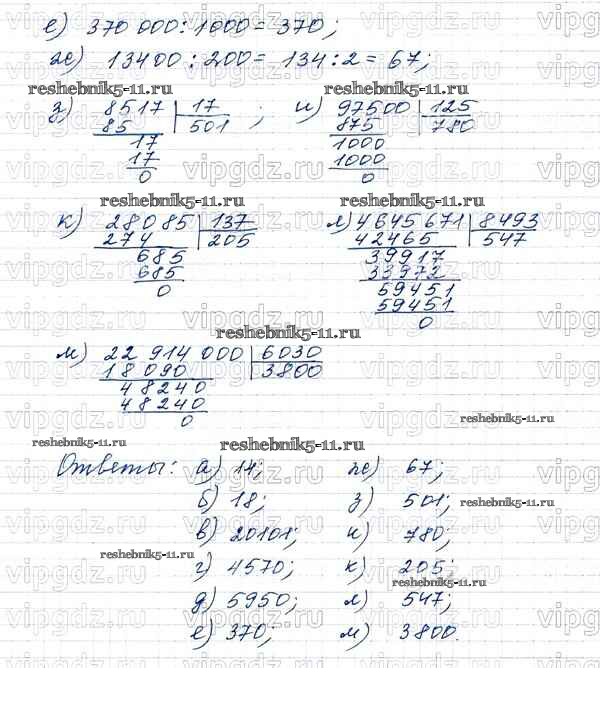 е) 370 000 : 1000 = 370;
ж) 13400 : 200 = 134 : 2 = 67;
resheBnik5-11.ru resheBnik5-11.ru
з) 8517 | 17 ; и) 97500 | 125
85 501 875 780
17 1000
17 1000
0 0
resheBnik5-11.ru resheBnik5-11.ru
к) 28085 | 137 л) 4645671 | 8493
274 205 42465 547
685 39917
685 33972
0 59451
59451
0
resheBnik5-11.ru
м) 22 914 000 | 6030
18 090 3800
48240
48240
0
resheBnik5-11.ru
resheBnik5-11.ru resheBnik5-11.ru
Ответы: а) 14; ж) 67;
б) 18; з) 501; resheBnik5-11.ru
в) 20101; и) 780;
resheBnik5-11.ru
г) 4570; к) 205;
resheBnik5-11.ru
д) 5950; л) 547;
е) 370; м) 3800.
vipgdz.ru